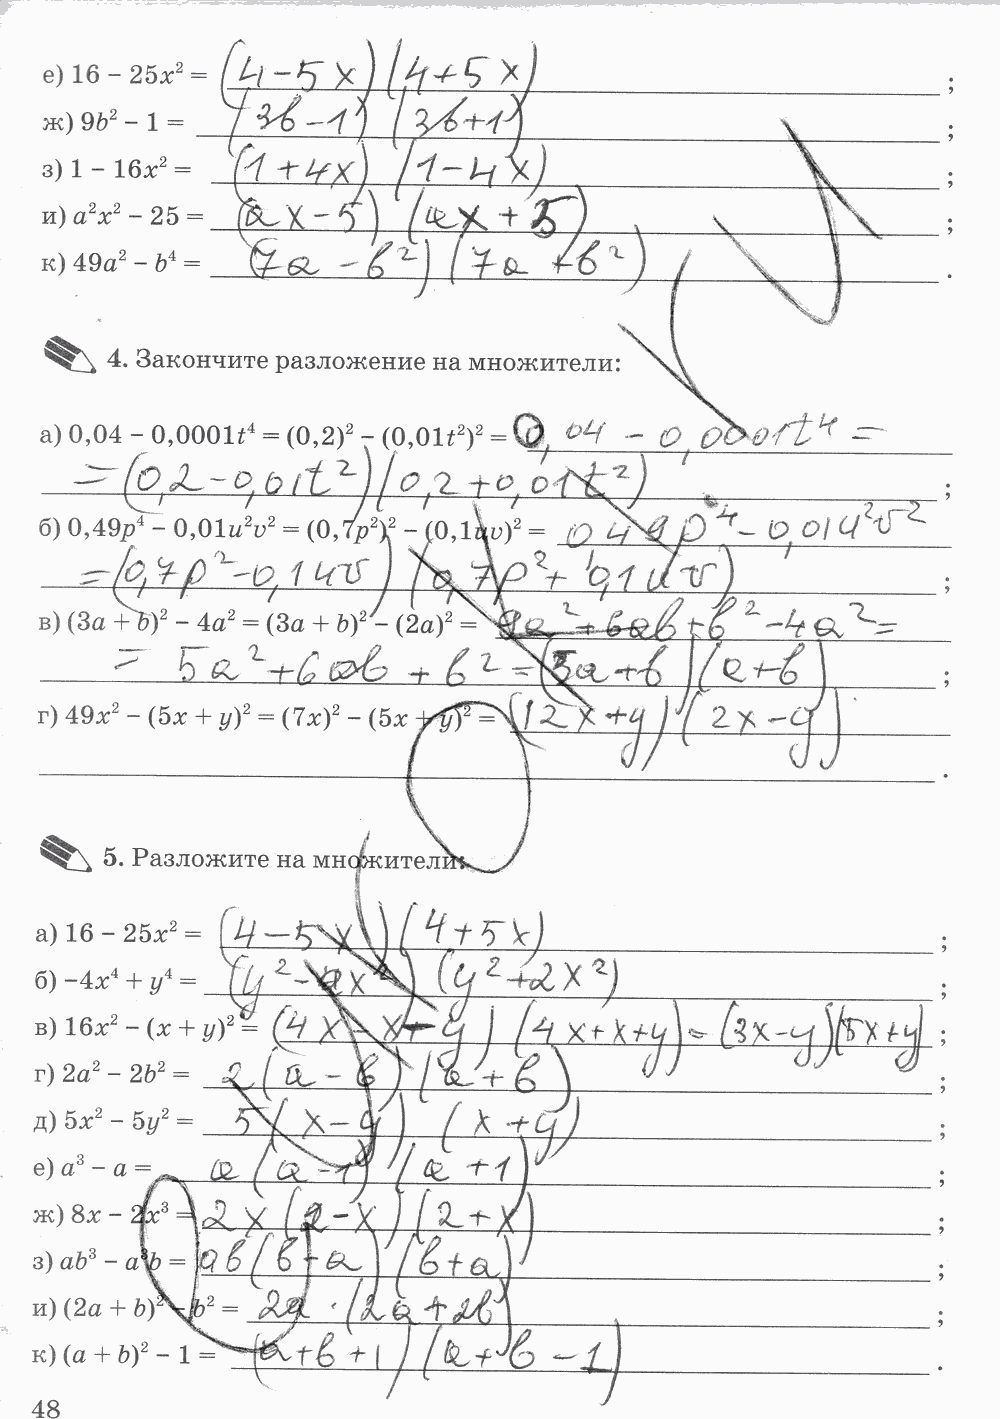 е) 16 − 25x² = (4−5x)(4+5x) ;
ж) 9b² − 1 = (3b−1)(3b+1) ;
з) 1 − 16x² = (1+4x)(1−4x) ;
и) a²x² − 25 = (ax−5)(ax+5) ;
к) 49a² − b⁴ = (7a−b²)(7a+b²) .
4. Закончите разложение на множители:
а) 0,04 − 0,0001t⁴ = (0,2)² − (0,01t²)² = 0,04 − 0,0001t⁴ =
= (0,2−0,01t²)(0,2+0,01t²) ;
б) 0,49p⁴ − 0,01u²v² = (0,7p²)² − (0,1uv)² = 0,49p⁴ − 0,01u²v²
= (0,7p²−0,1uv)(0,7p²+0,1uv) ;
в) (3a + b)² − 4a² = (3a + b)² − (2a)² = 9a²+6ab+b²−4a²=
= 5a²+6ab+b² = (5a+b)(a+b) ;
г) 49x² − (5x + y)² = (7x)² − (5x + y)² = (12x+y)(2x−y)
.
5. Разложите на множители:
а) 16 − 25x² = (4−5x)(4+5x) ;
б) −4x⁴ + y⁴ = (y²−2x²)(y²+2x²) ;
в) 16x² − (x + y)² = (4x−x−y)(4x+x+y) = (3x−y)(5x+y) ;
г) 2a² − 2b² = 2(a−b)(a+b) ;
д) 5x² − 5y² = 5(x−y)(x+y) ;
е) a³ − a = a(a−1)(a+1) ;
ж) 8x − 2x³ = 2x(2−x)(2+x) ;
з) ab³ − a³b = ab(b−a)(b+a) ;
и) (2a + b)² − b² = 2a·(2a+2b) ;
к) (a + b)² − 1 = (a+b+1)(a+b−1) .
48